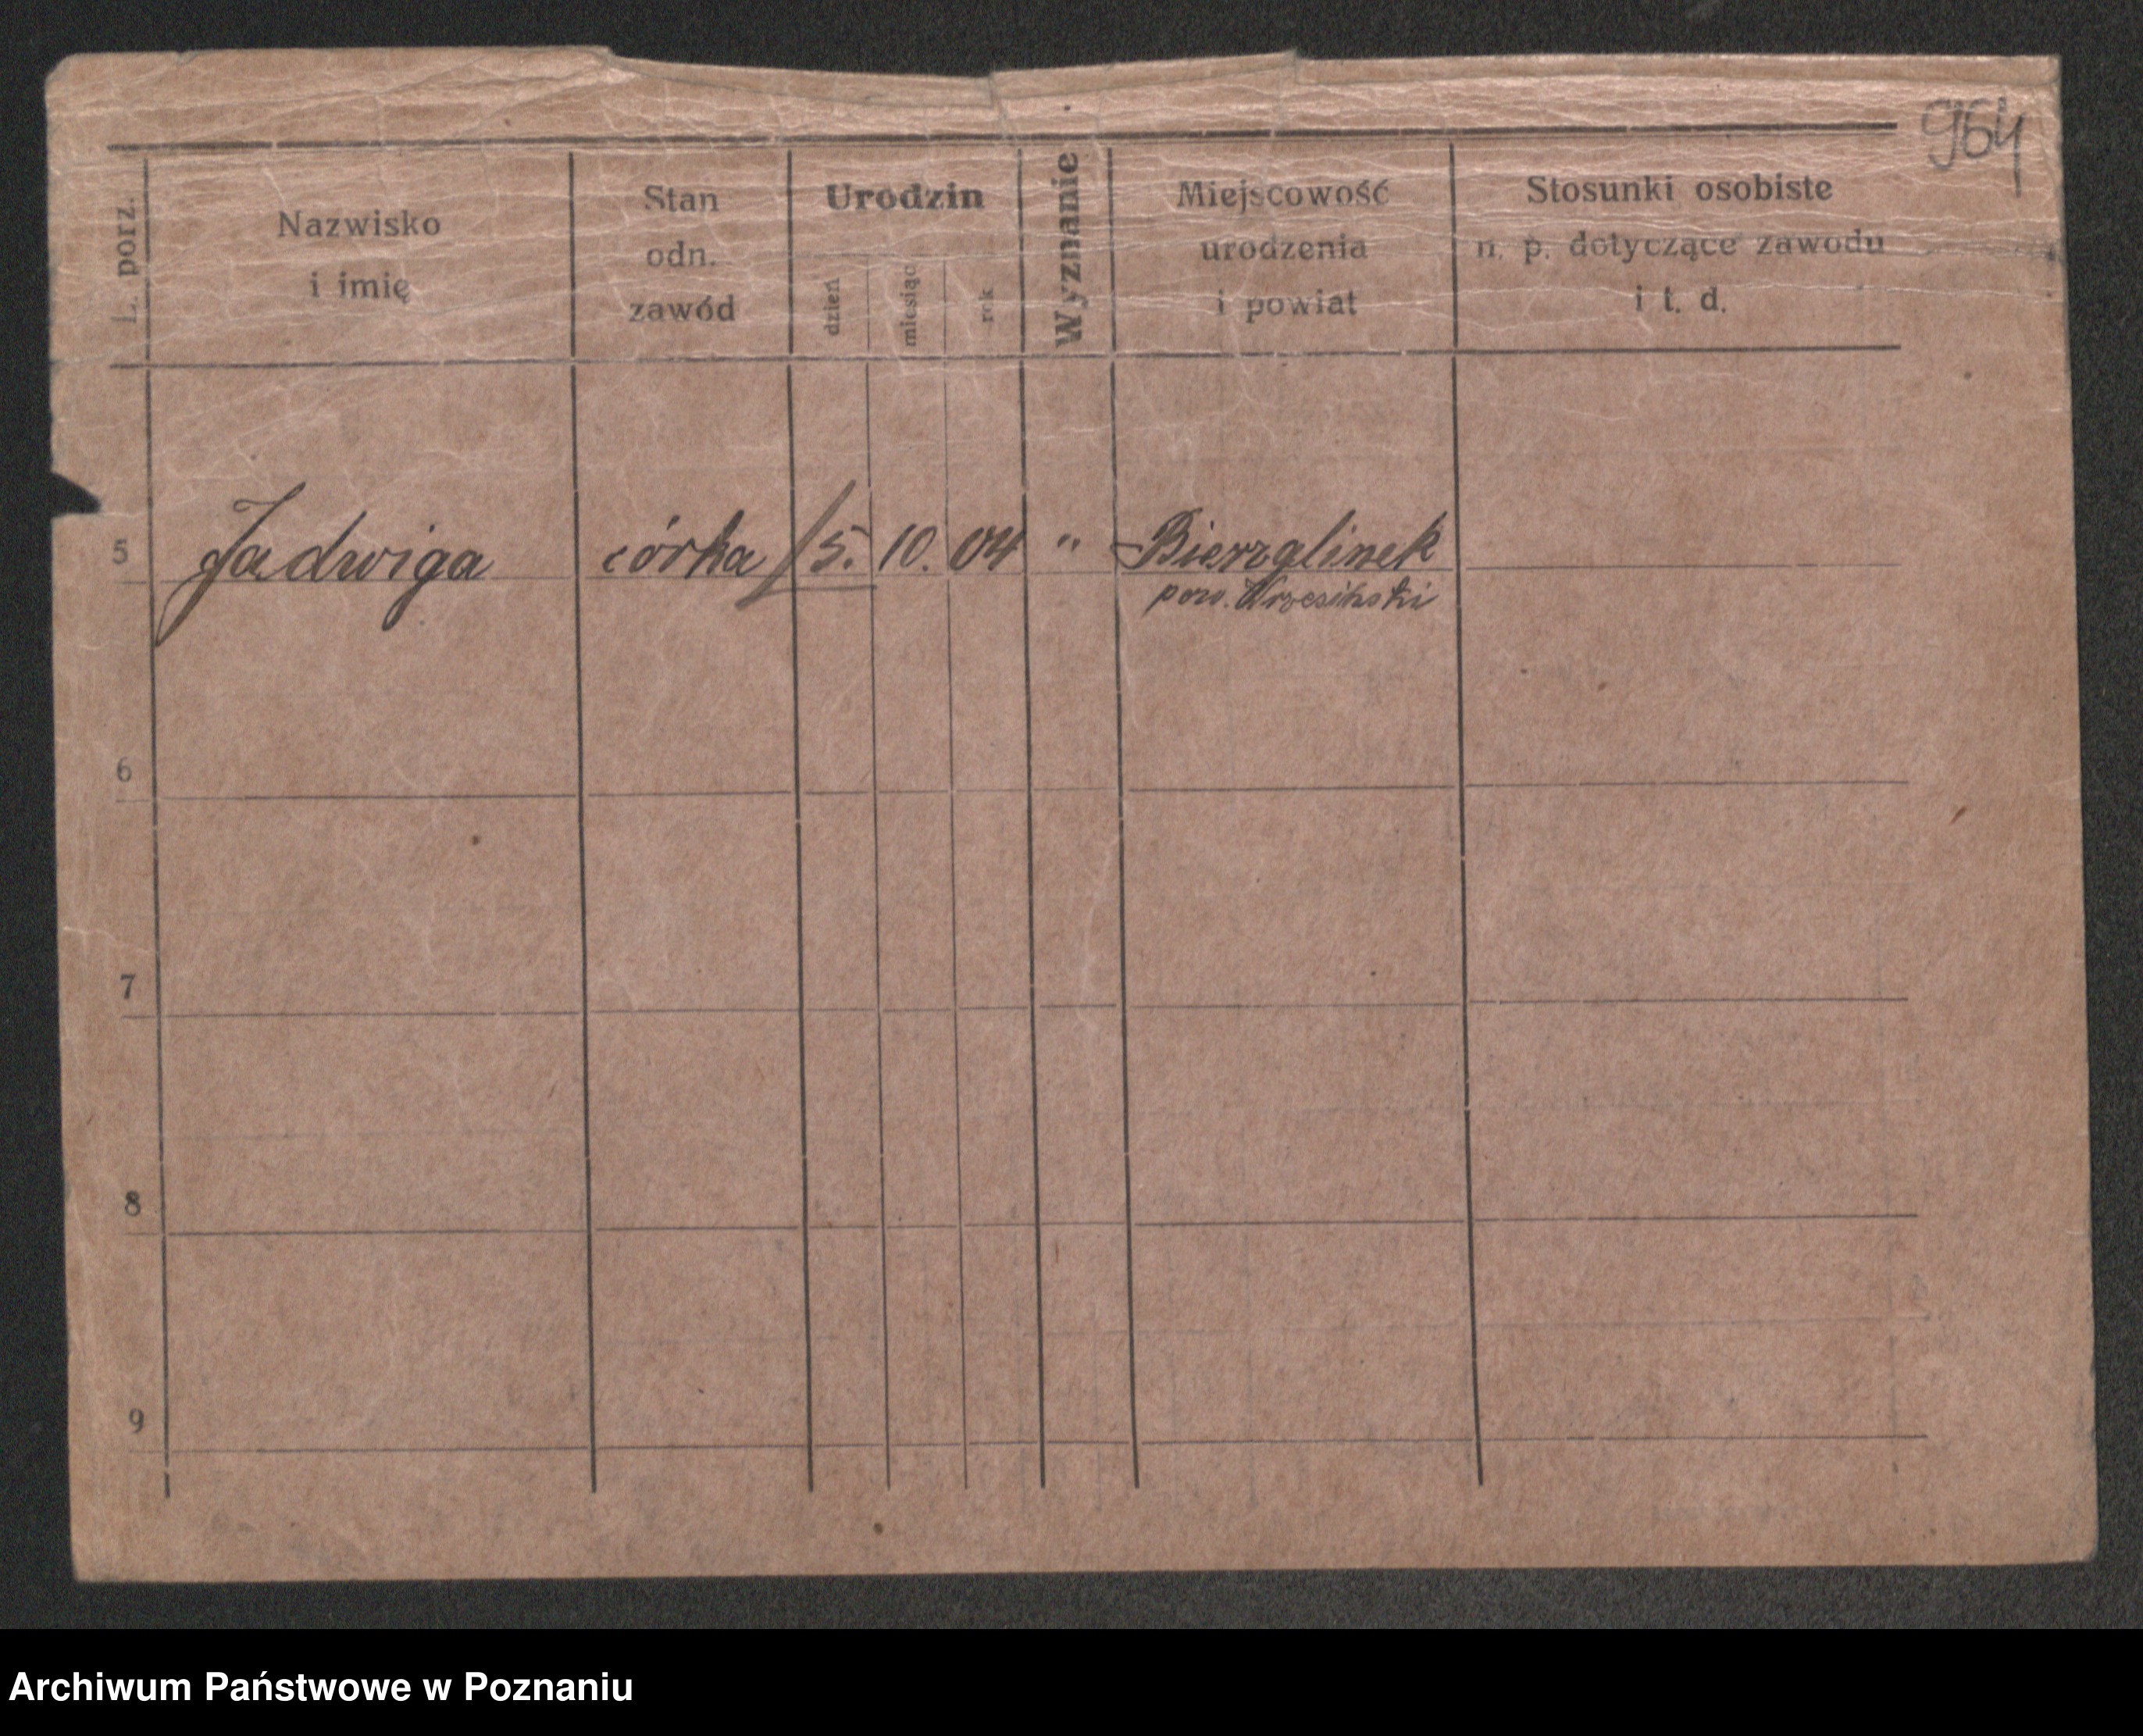 964
L. porz.
Nazwisko
i imię
Stan
odn.
zawód
Urodzin
dzień
miesiąc
rok
Wyznanie
Miejscowość
urodzenia
i powiat
Stosunki osobiste
n. p. dotyczące zawodu
i t. d.
5 Jadwiga córka 15. 10. 04 " Bierzglinek
pow. Wrzesiński
6
7
8
9
Archiwum Państwowe w Poznaniu